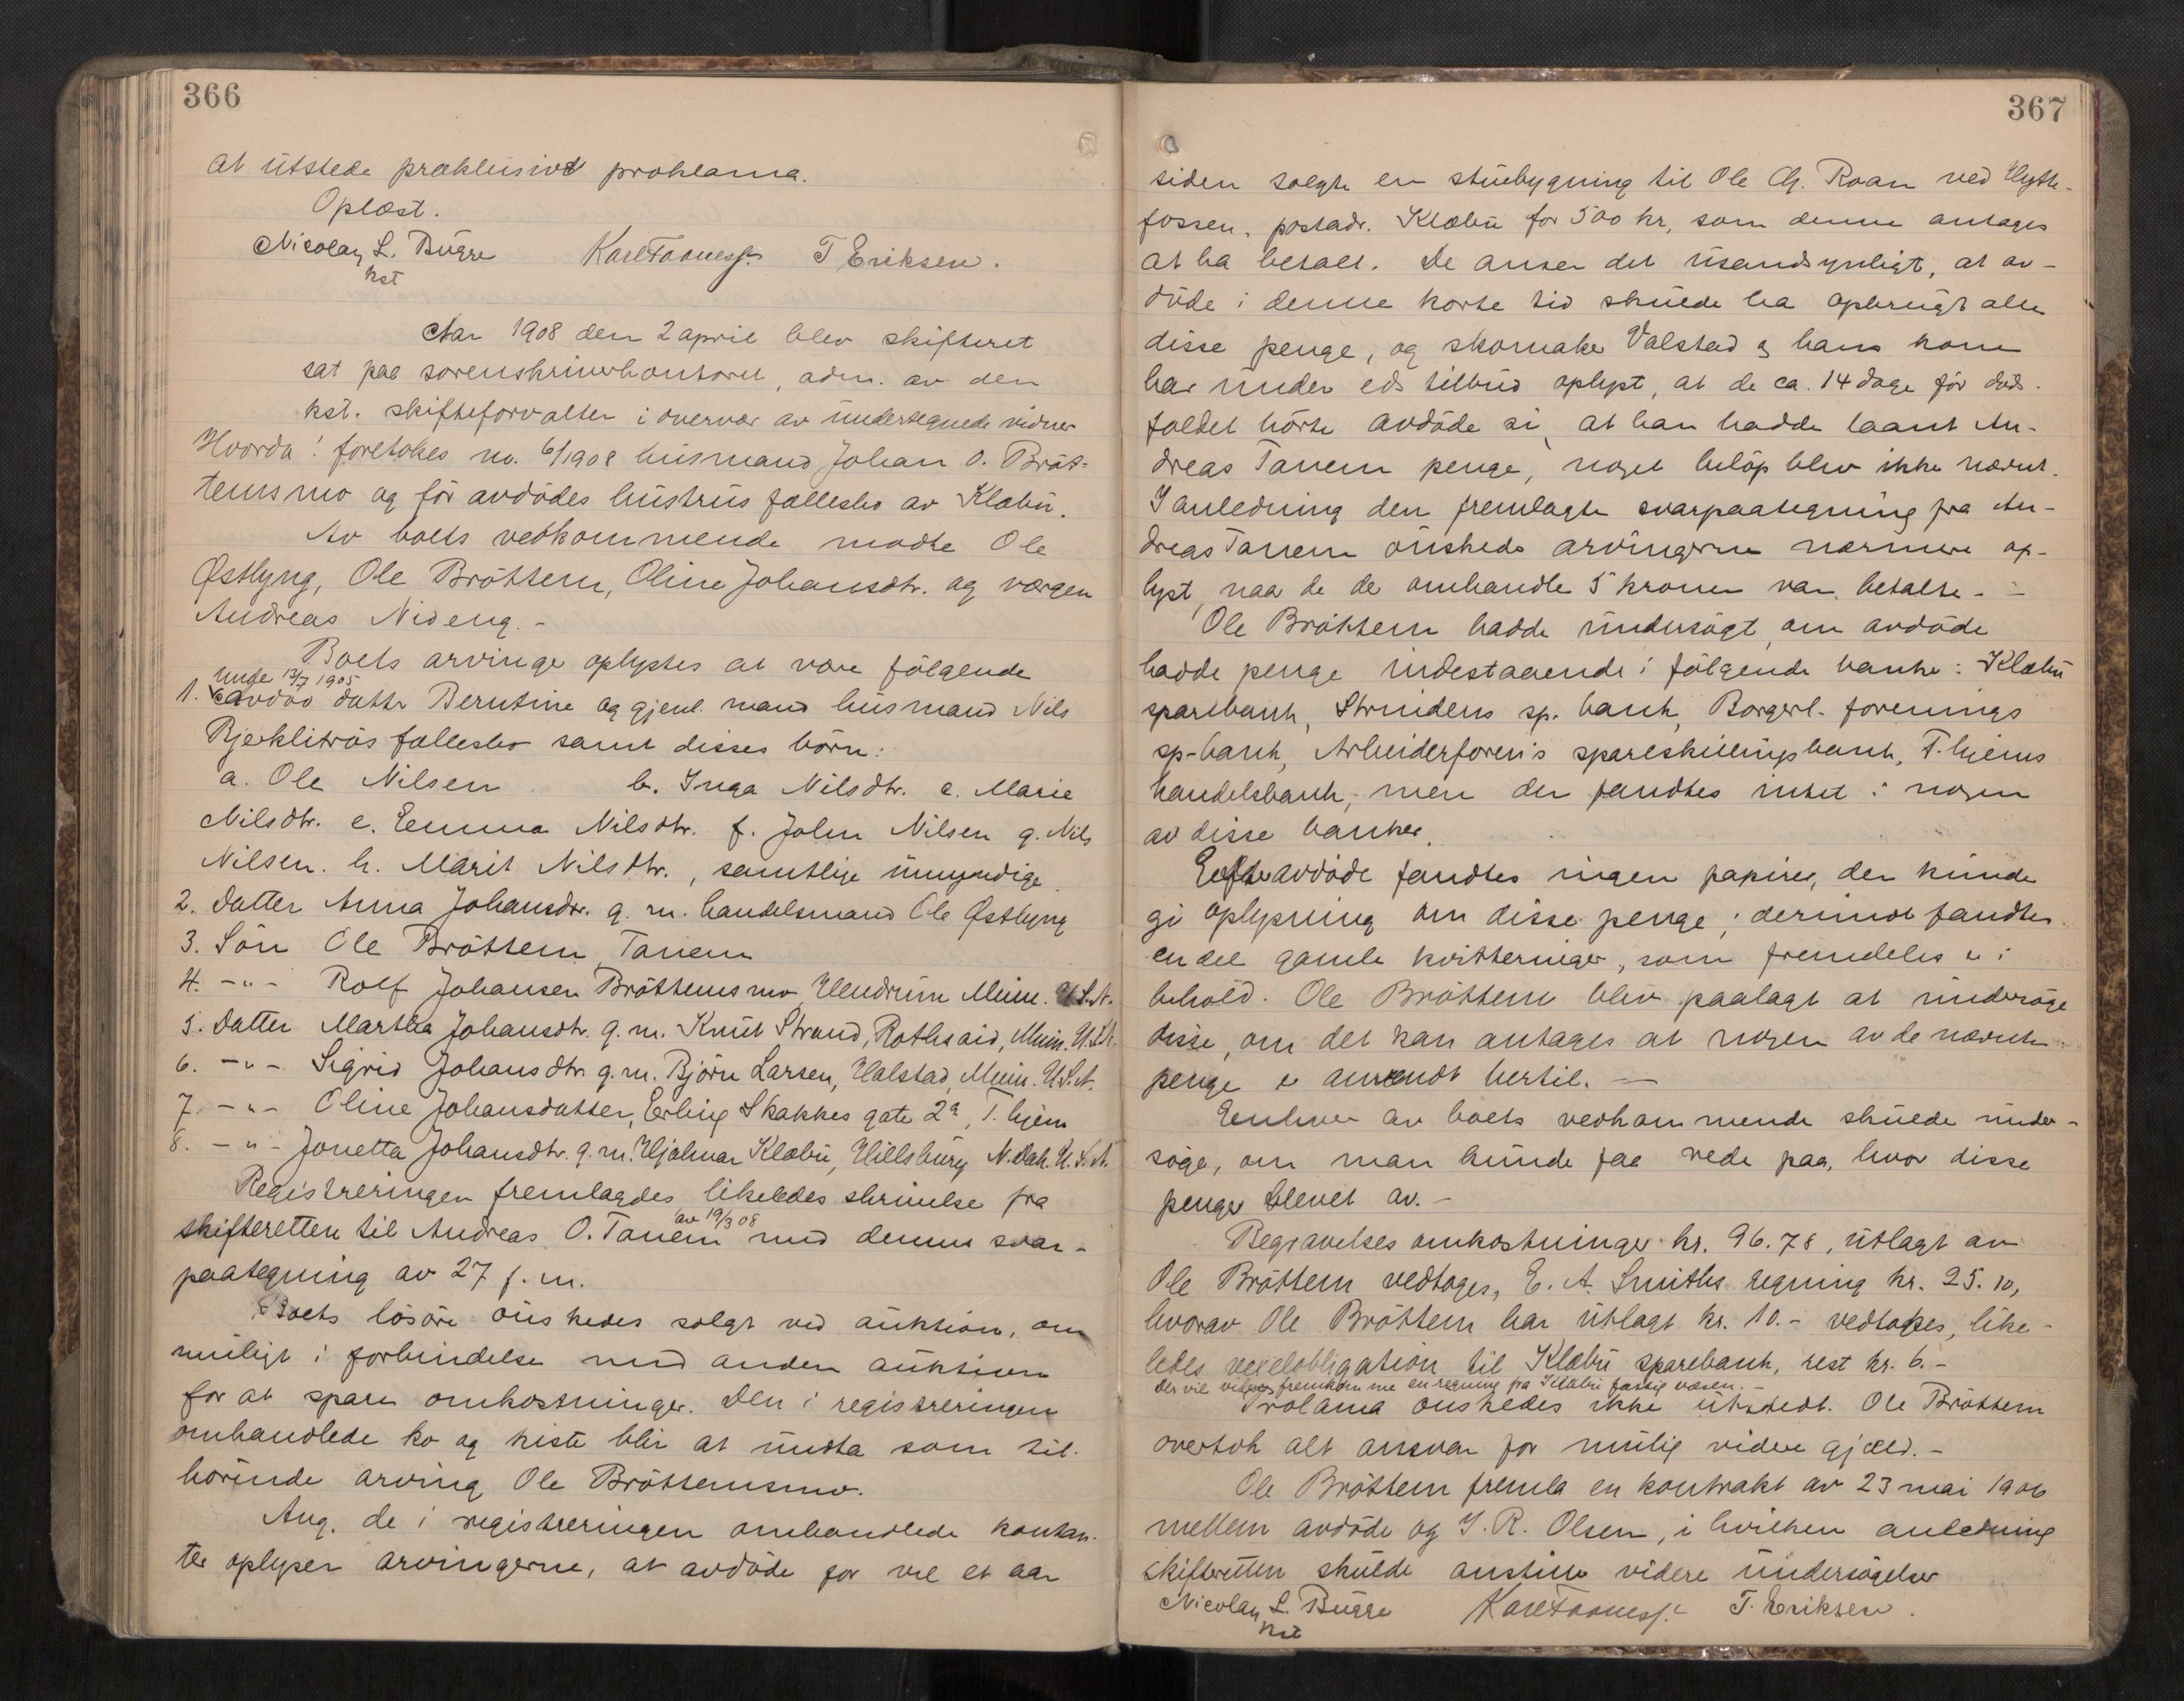 366
at utstede præklusivt proklama.
Oplæst.
Nicolay L. Bugge T Eriksen.
kst
Aar 1908 den 2 april blev skifteret
sat paa sorenskriverkontoret, adm. av den
kst. skifteforvalter i overvær av undertegnede vidner
Hvorda! foretokes no. 6/1908 husmand Johan O. Bröt-
temsmo og för avdödes hustrus fællesbo av Klæbu.
Av boets vedkommende mødte Ole
Østlyng, Ole Bröttem, Oline Johansdtr. og værgen
Andreas Nideng.-
Boets arvinge oplystes at være fölgende
13/7 1905
1. avdöd datter Berntine og gjenl. mand husmand Nils
Bjerklitrøs fællesbo samt disses börn:
a. Ole Nilsen b. Inga Nilsdtr. c. Marie
Nilsdtr. e. Emma Nilsdtr. f. John Nilsen g. Nils
Nilsen. h. Marit Nilsdtr., samtlige umyndige.
2. Datter Anna Johansdtr. g. m. handelsmand Ole Østlyng
3. Sön Ole Bröttem, Tanem
4. -"- Rolf Johansen Bröttemsmo, Hendrum Minn. U.S.A.
5. Datter Martha Johansdtr. g. m. Knut Strand, Rothsaid, Minn. U.S.A.
6. -"- Sigrid Johansdtr. g. m. Björn Larsen, Halstad, Minn. U.S.A.
7. -"- Oline Johansdatter, Erling Skakkes gate 2a, T.hjem
8. -"- Jonetta Johansdtr. g. m. Hjalmar Klæbu, Hillsburg N. Dak. U.S.A.
Registreringen fremlagdes likeledes skrivelse fra
av 19/3 08
skifteretten til Andreas O. Tanem med dennes svar-
paategning av 27 f. m.
Boets lösöre önskedes solgt ved auktion, om
muligt i forbindelse med anden auktion
for at spare omkostninger. Den i registreringen
omhandlede ko og kiste blir at undta som til-
hörende arving Ole Bröttemsmo.
Ang. de i registreringen omhandlede kontan-
ter oplyser arvingerne, at avdöde for vel et aar
367
siden solgte en stuebygning til Ole Chr. Roan ved Hytte-
fossen, postadr. Klæbu for 500 kr, som denne antages
at ha betalt. De anser det usandsynligt, at av-
döde i denne korte tid skulde ha opbrugt alle
disse penge, og skomaker Valstad og hans kone
har under eds tilbud oplyst, at de ca. 14 dage för döds-
faldet hörte avdöde si, at han hadde laant An-
dreas Tanem penge, noget belöp blev ikke nævnt.
I anledning den fremlagte svarpaategning fra An-
dreas Tanem önskede arvingerne nærmere op-
lyst, naar de omhandle 5 kroner var betalte. -
Ole Bröttem hadde undersögt, om avdöde
hadde penge indestaaende i fölgende banke: Klæbu
sparebank, Strindens sp. bank, Borgerl. forenings
sp-bank, Arbeiderforen's spareskillingsbank, T.hjems
handelsbank, men der fandtes intet i nogen
av disse banker.
Efter avdöde fandtes ingen papirer, der kunde
gi oplysning om disse penge; derimot fandtes
endel gamle kvitteringer, som fremdeles er i
behold. Ole Bröttem blev paalagt at undersöge
disse, om det kan antages at nogen av de nævnte
penge er anvendt hertil. —
Enhver av boets vedkommende skulde under-
söge, om man kunde faa rede paa, hvor disse
penge blevet av. -
Begravelses omkostninger kr. 96.78, utlagt av
Ole Bröttem vedtoges, E. A. Smiths regning kr. 25.10,
hvorav Ole Bröttem har utlagt kr. 10.- vedtokes, like-
ledes vexelobligation til Klæbu sparebank, rest kr. 6.-
Der vil fremkomme en regning fra Klæbu fattigvæsen. -
Prolama önskedes ikke utstedt. Ole Bröttem
overtok alt ansvar for mulig videre gjæld. -
Ole Bröttem fremla en kontrakt av 23 mai 1906
mellem avdöde og J. R. Olsen, i hvilken anledning
skifteretten skulde anstille videre undersögelser
Nicolay L. Bugge T. Eriksen.
kst